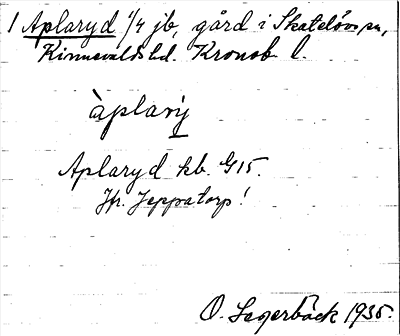 1 Aplaryd 1/4 jb, gård i Skatelövs sn,
Kinnevalds hd. Kronob l.
àplarÿ
Aplaryd kb. G15.
Jfr. Jeppatorp!
O. Lagerbäck 1935.